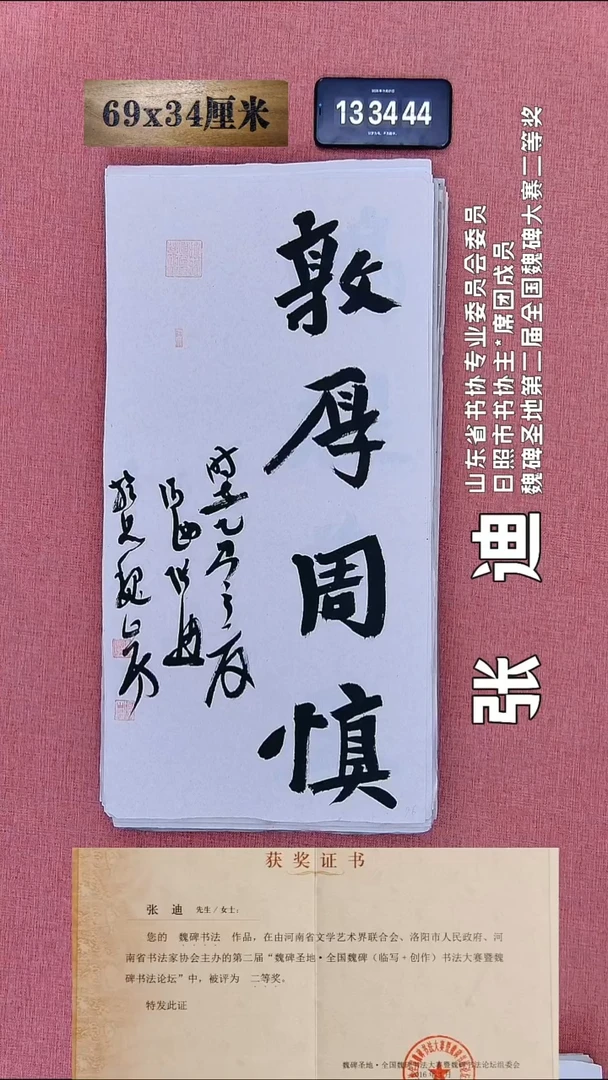 69x34厘米
13 34 44
敦厚周慎
山东省书协专业委员会委员
日照市书协主*席团成员
魏碑圣地第二届全国魏碑大赛二等奖
张 迪
获奖证书
张 迪 先生/女士:
您的 魏碑书法 作品，在由河南省文学艺术界联合会、洛阳市人民政府、河
南省书法家协会主办的第二届“魏碑圣地·全国魏碑（临写+创作）书法大赛暨魏
碑书法论坛”中，被评为 二等奖。
特发此证
魏碑圣地·全国魏碑书法大赛暨魏碑书法论坛组委会